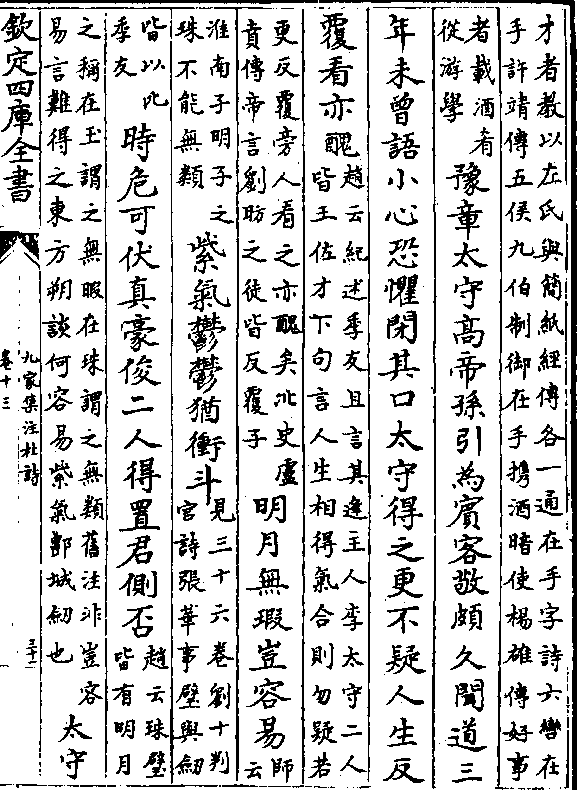 才者教以左氏與簡紙經傳各一通在手字詩六轡在
手許靖傳五侯九伯制御在手攜酒暗使楊雄傳好事
者載酒肴
從游學
豫章太守高帝孫引為賓客敬頗久聞道三
年未曾語小心恐懼閉其口太守得之更不疑人生反
覆看亦醜
趙云紀述季友且言其逢主人李太守二人
皆王佐才下句言人生相得氣合則勿疑若
更反覆旁人看之亦醜矣北史盧
賁傳帝言劉昉之徒皆反覆子
明月無瑕豈容易
師
云
淮南子明子之
珠不能無類
紫氣鬱鬱猶衝斗
見三十六卷劉十判
官詩張華事壁與劒
皆以比
季友
時危可伏真豪俊二人得置君側否
趙云珠璧
皆有明月
之稱在玉謂之無瑕在珠謂之無類舊注非豈容
易言難得之東方朔談何容易紫氣酆城劒也
太守
欽定四庫全書
九家集注杜詩
卷十三
三十二